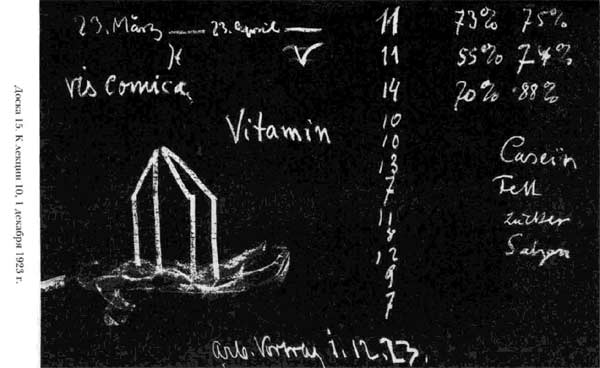 Доска 15. К лекции 10, 1 декабря 1923 г.
23. März — 23. April —
♓ ♈
vis comica.
Vitamin
11 73% 75%
11 55% 74%
14 70% 88%
10
10
13
7
11
8
12
9
7
Casein
Fett
Zucker
Salzen
arb. Vortrag 1.12.23.